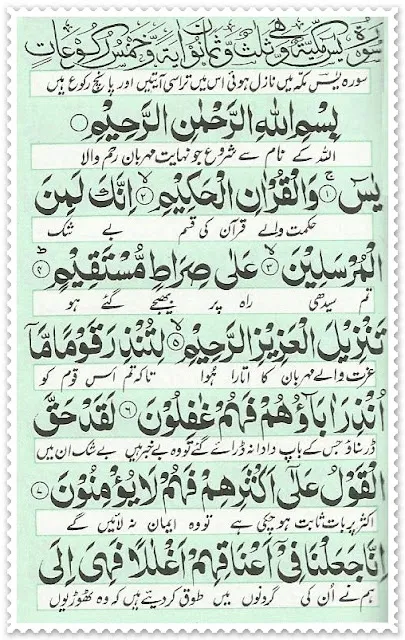 سورة يس مكية وهى ثلث وثمانون اية وخمس ركوعات
سورہ یٰسٓ مکہ میں نازل ہوئی اس میں تراسی آیتیں اور پانچ رکوع ہیں
بِسْمِ اللهِ الرَّحْمٰنِ الرَّحِيْمِ
اللہ کے نام سے شروع جو نہایت مہربان رحم والا
يٰسٓ ۚ﴿۱﴾ وَالْقُرْاٰنِ الْحَكِيْمِ ۙ﴿۲﴾ اِنَّكَ لَمِنَ
حکمت والے قرآن کی قسم بے شک
الْمُرْسَلِيْنَ ۙ﴿۳﴾ عَلٰى صِرَاطٍ مُّسْتَقِيْمٍ ؕ﴿۴﴾
تم سیدھی راہ پر بھیجے گئے ہو
تَنْزِيْلَ الْعَزِيْزِ الرَّحِيْمِ ۙ﴿۵﴾ لِتُنْذِرَ قَوْمًا مَّاۤ
عزت والے مہربان کا اتارا ہوا تاکہ تم اس قوم کو
اُنْذِرَ اٰبَآؤُهُمْ فَهُمْ غٰفِلُوْنَ ﴿۶﴾ لَقَدْ حَقَّ
ڈر سناؤ جس کے باپ دادا نہ ڈرائے گئے تو وہ بے خبر ہیں بے شک ان میں
الْقَوْلُ عَلٰۤى اَكْثَرِهِمْ فَهُمْ لَا يُؤْمِنُوْنَ ﴿۷﴾
اکثر پر بات ثابت ہو چکی ہے تو وہ ایمان نہ لائیں گے
اِنَّا جَعَلْنَا فِيْۤ اَعْنَاقِهِمْ اَغْلٰلًا فَهِىَ اِلَى
ہم نے اُن کی گردنوں میں طوق کردیئے ہیں کہ وہ ٹھوڑیوں